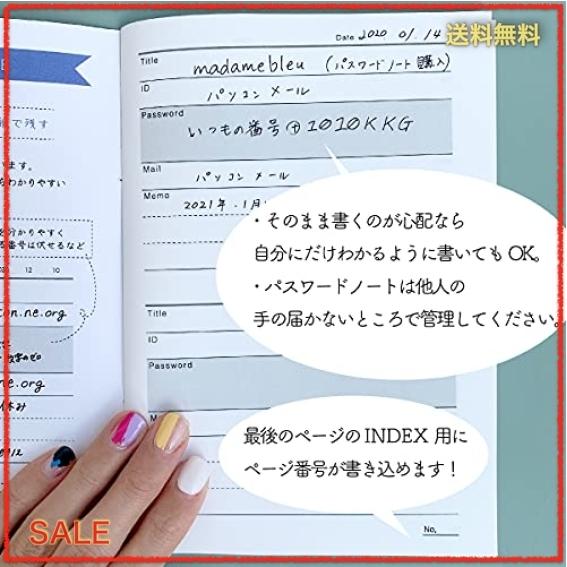 送料無料
Date 2020 01. 14
Title madamebleu (パスワードノート購入)
ID パソコン メール
Password
いつもの番号⊕1010KKG
Mail パソコン メール
Memo 2021年.1月
・そのまま書くのが心配なら
自分にだけわかるように書いてもOK。
・パスワードノートは他人の
手の届かないところで管理してください。
Title
ID
Password
M
最後のページのINDEX 用に
ページ番号が書き込めます!
No.
で残す
います。
わかりやすい
分かりやすく
番号は伏せるなど
12 10
.ne.org
ne.org
SALE